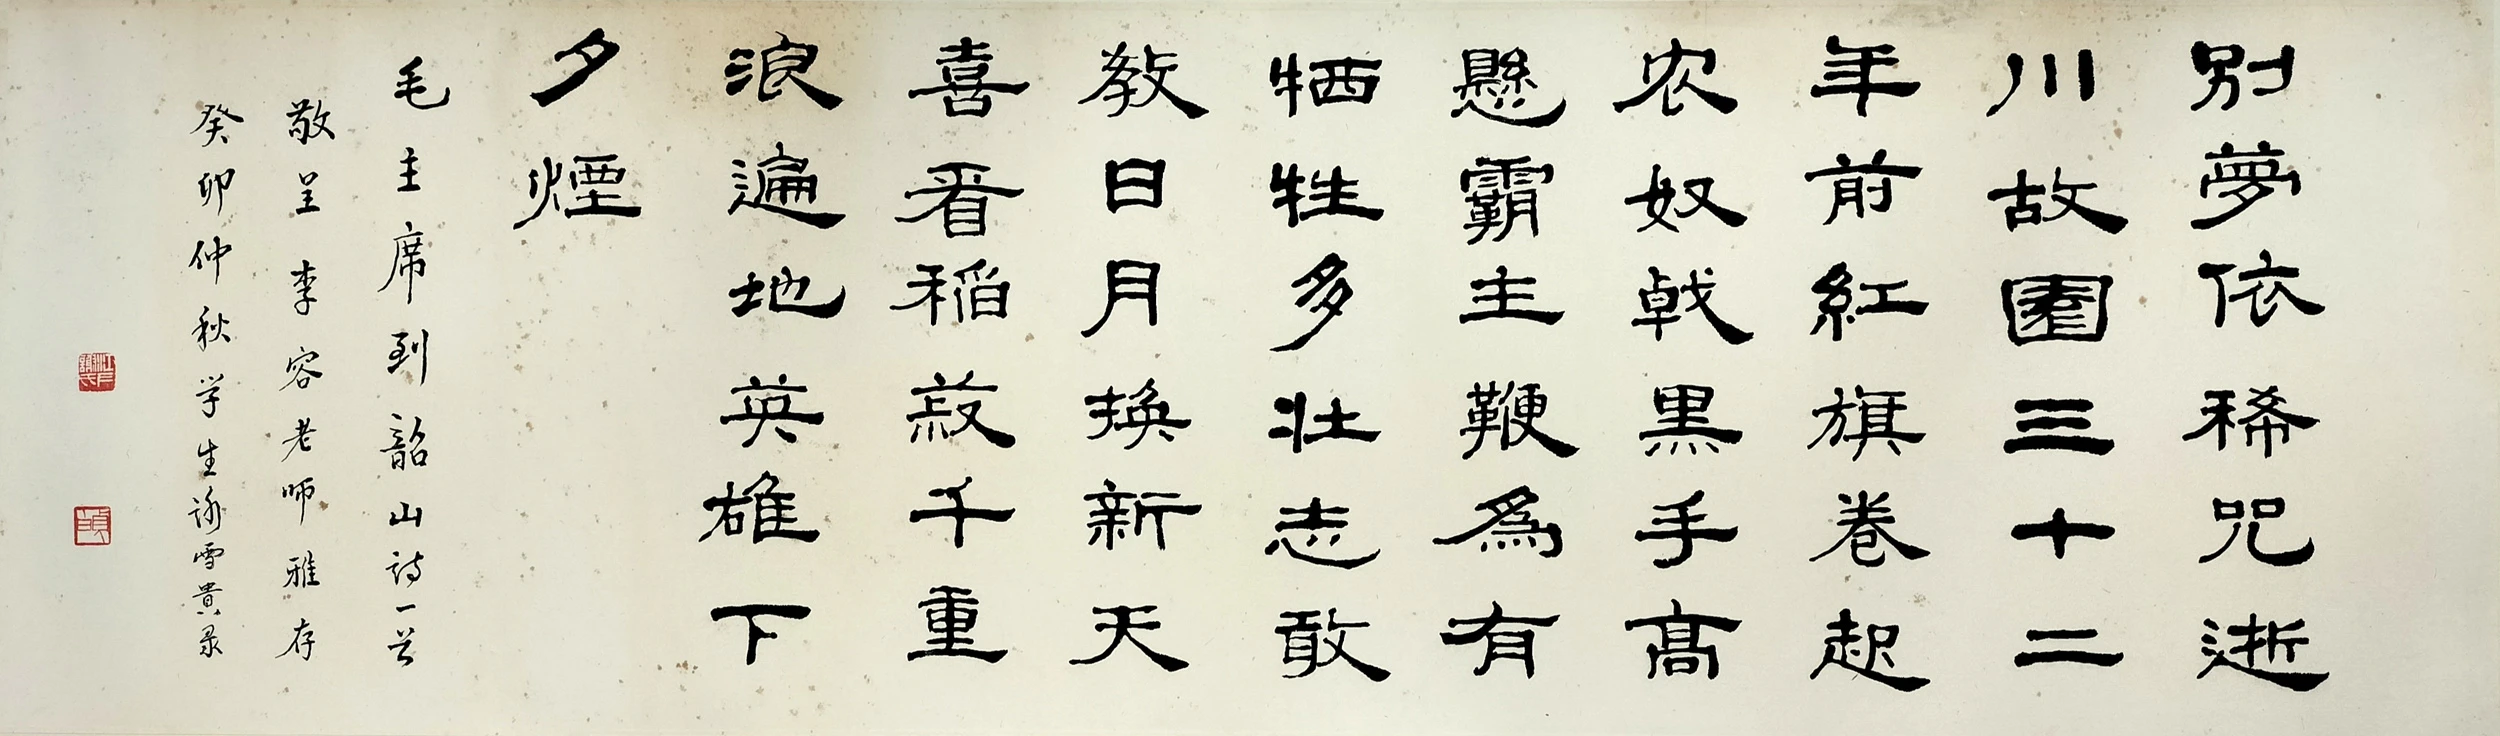 别夢依稀咒逝
川故園三十二
年前紅旗卷起
农奴戟黑手高
懸霸主鞭為有
牺牲多壮志敢
教日月换新天
喜看稻菽千重
浪遍地英雄下
夕煙
毛主席到韶山诗一首
敬呈李容老师雅存
癸卯仲秋学生詠雪贵录